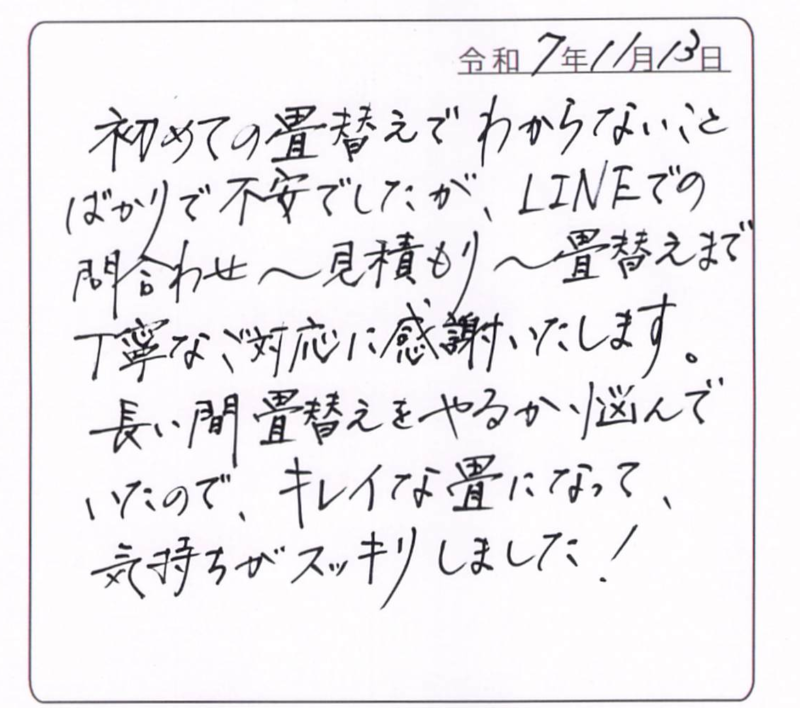 令和7年11月13日
初めての畳替えでわからないこと
ばかりで不安でしたが、LINEでの
問合わせ〜見積もり〜畳替えまで
丁寧なご対応に感謝いたします。
長い間畳替えをやるか悩んで
いたので、キレイな畳になって、
気持ちがスッキリしました!